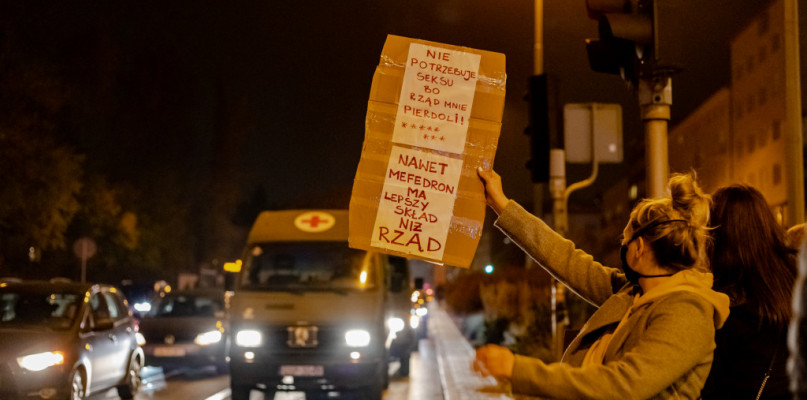 NIE
POTRZEBUJE
SEKSU
BO
RZĄD MNIE
PIERDOLI!
*****
***
NAWET
MEFEDRON
MA
LEPSZY
SKŁAD
NIŻ
RZĄD